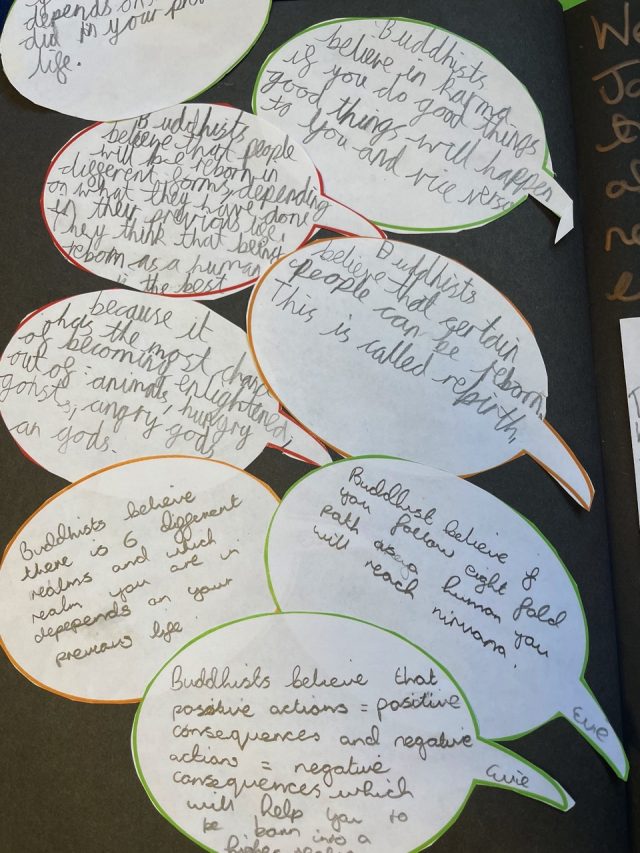 depends on
did in your
life.
Buddhists
believe in karma
if you do good things
good things will happen
to you and vice versa
Buddhists
believe that people
will be reborn in
different forms, depending
on what they have done
in their previous life.
They think that being
reborn as a human
is the best
because it
ohas the most chance
of becoming
out of : animals, enlightened,
gohsts, angry gods hungry
an gods.
Buddhists
believe that certain
people can be reborn
This is called rebirth.
Buddhists believe
there is 6 different
realms and which
realm you are in
depepends on your
previous life.
Buddhist believe if
you follow eight fold
path as a human you
will reach nirvana.
Evie
Buddhists believe that
positive actions = positive
consequences and negative
actions = negative
consequences which
will help you to
be born into a
Evie
We